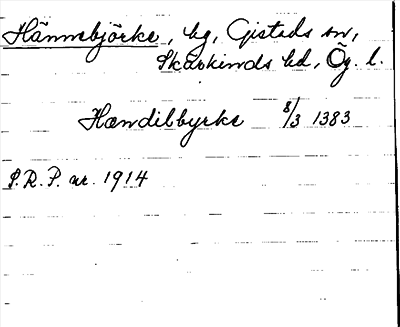 Hännebjörke, by, Gistads sn,
Skärkinds hd, Ög. l.
Hændilbyrke 8/3 1383
S.R.P. nr. 1914